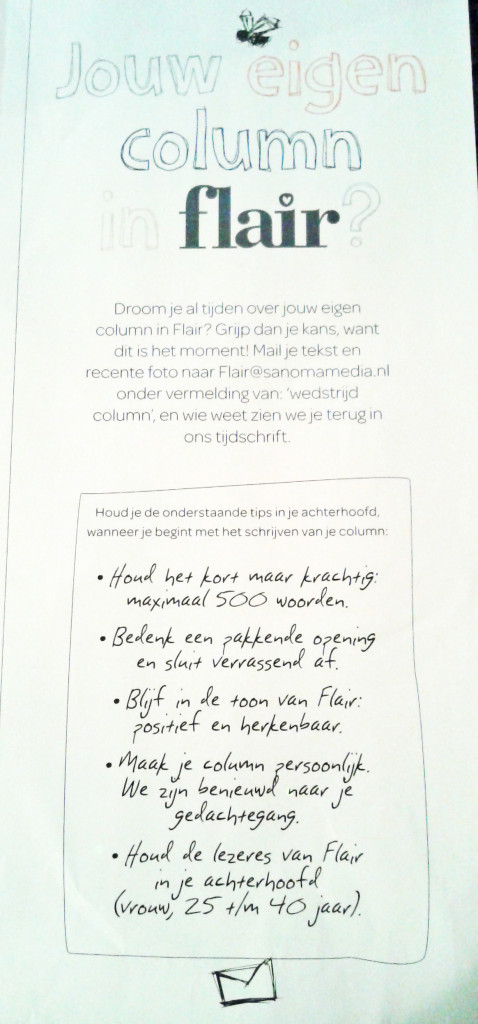 Jouw eigen
column
in flair?
Droom je al tijden over jouw eigen
column in Flair? Grijp dan je kans, want
dit is het moment! Mail je tekst en
recente foto naar Flair@sanomamedia.nl
onder vermelding van: ‘wedstrijd
column’, en wie weet zien we je terug in
ons tijdschrift.
Houd je de onderstaande tips in je achterhoofd,
wanneer je begint met het schrijven van je column:
• Houd het kort maar krachtig:
maximaal 500 woorden.
• Bedenk een pakkende opening
en sluit verrassend af.
• Blijf in de toon van Flair:
positief en herkenbaar.
• Maak je column persoonlijk.
We zijn benieuwd naar je
gedachtegang.
• Houd de lezeres van Flair
in je achterhoofd
(vrouw, 25 t/m 40 jaar).